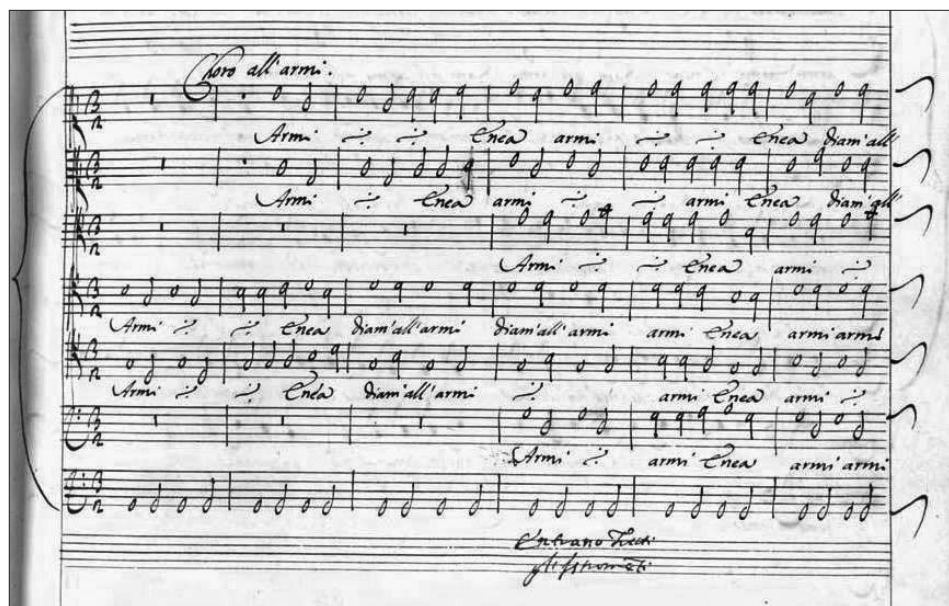 Choro all'armi.
Armi ·/· ·/· Enea armi ·/· ·/· Enea diam'all'
Armi ·/· Enea armi ·/· ·/· armi Enea diam'all'
Armi ·/· ·/· Enea armi ·/·
Armi ·/· ·/· Enea diam'all'armi diam'all'armi armi Enea armi armi
Armi ·/· ·/· Enea diam'all'armi ·/· armi Enea armi ·/·
Armi ·/· armi Enea armi armi
Entrano tutti
gli